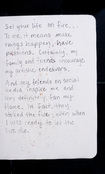 Set your life on fire...
To me, it means make
things happen, have
passion. Certainly, my
family and friends encourage
my artistic endeavors.
And my friends on social
media inspire me and
my
fire. In fact, they
stoked the fire, when when
I was ready to let the
fire die.